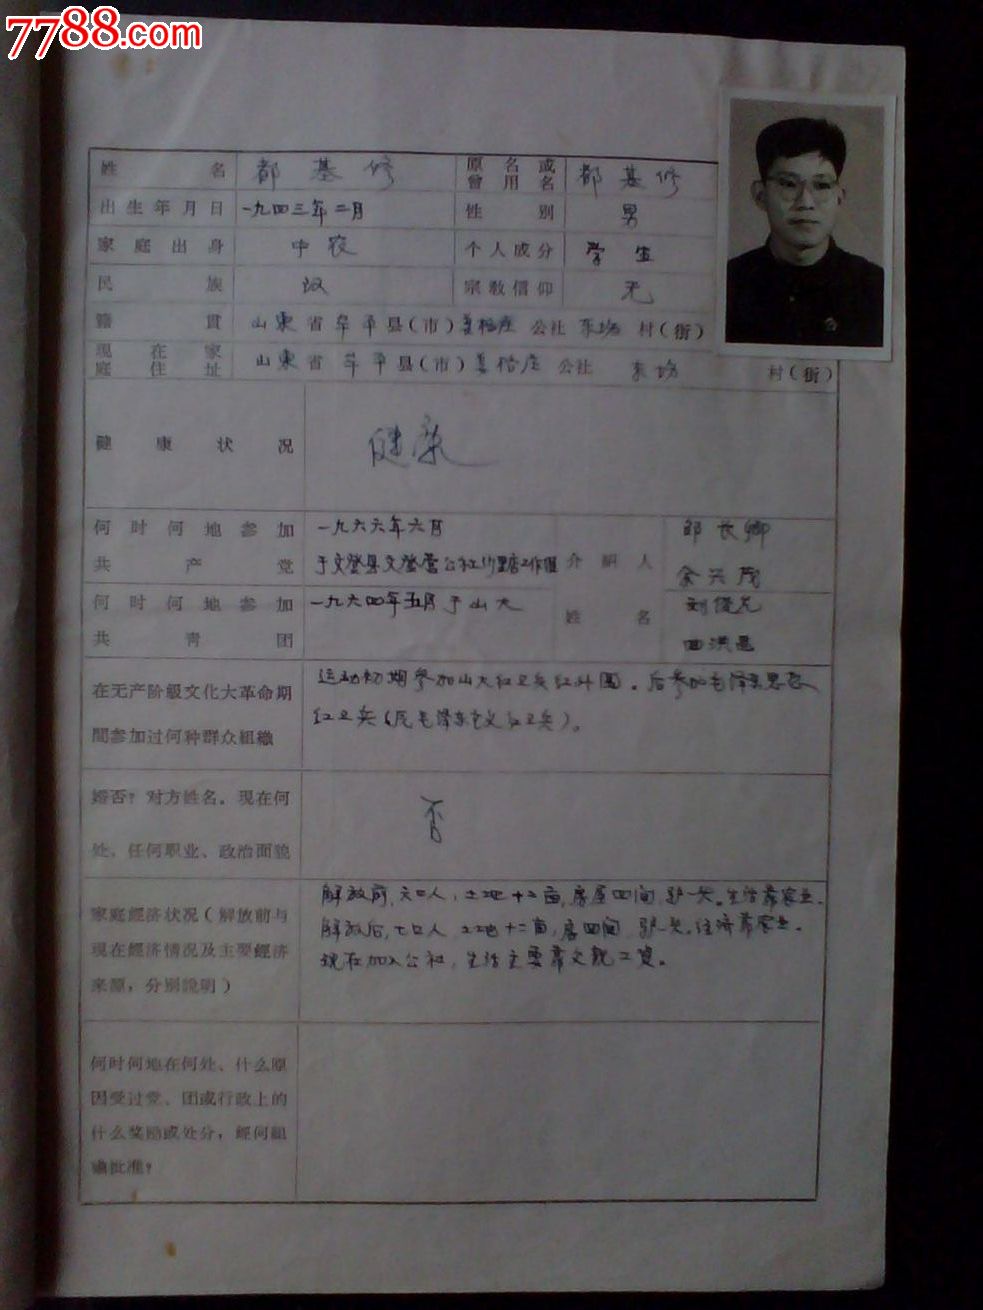 7788.com
姓名 都基修 原名或曾用名 都基修
出生年月日 一九四三年二月 性别 男
家庭出身 中农 个人成分 学生
民族 汉 宗教信仰 无
籍貫 山东省牟平县(市)姜格庄公社东 村(街)
现在家庭住址 山東省牟平县(市)姜格庄公社 东 村(街)
健康状况 健康
何时何地参加 一九六六年六月
共产党 于文登县文登营公社 介紹人 邹长卿
何时何地参加 一九六四年五月于山大 余兴茂
共青团 姓名 刘俊
曲洪
在无产阶級文化大革命期 运动初期参加山大红卫兵红外围。后参加毛泽东思想
間参加过何种群众組織 红卫兵(反毛泽东主义红卫兵)。
婚否?对方姓名、现在何 否
处、任何职业、政治面貌
家庭經济状况(解放前与 解放前,六口人,土地十二亩,房屋四间,驴一头。生活靠农业。
现在經济情况及主要經济 解放后,七口人,土地十二亩,房四间,驴一头。经济靠农业。
来源,分别說明) 现在加入公社,生活主要靠父親工資。
何时何地在何处、什么原
因受过党、团或行政上的
什么奖励或处分,經何組
織批准?